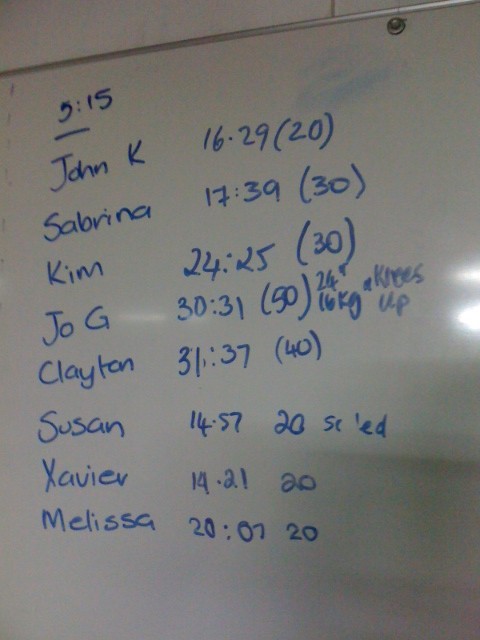 5:15
John K 16.29 (20)
Sabrina 17:39 (30)
Kim 24:25 (30)
Jo G 30:31 (50) 24" 16kg Knees up
Clayton 31:37 (40)
Susan 14.57 20 sc'ed
Xavier 14.21 20
Melissa 20:07 20